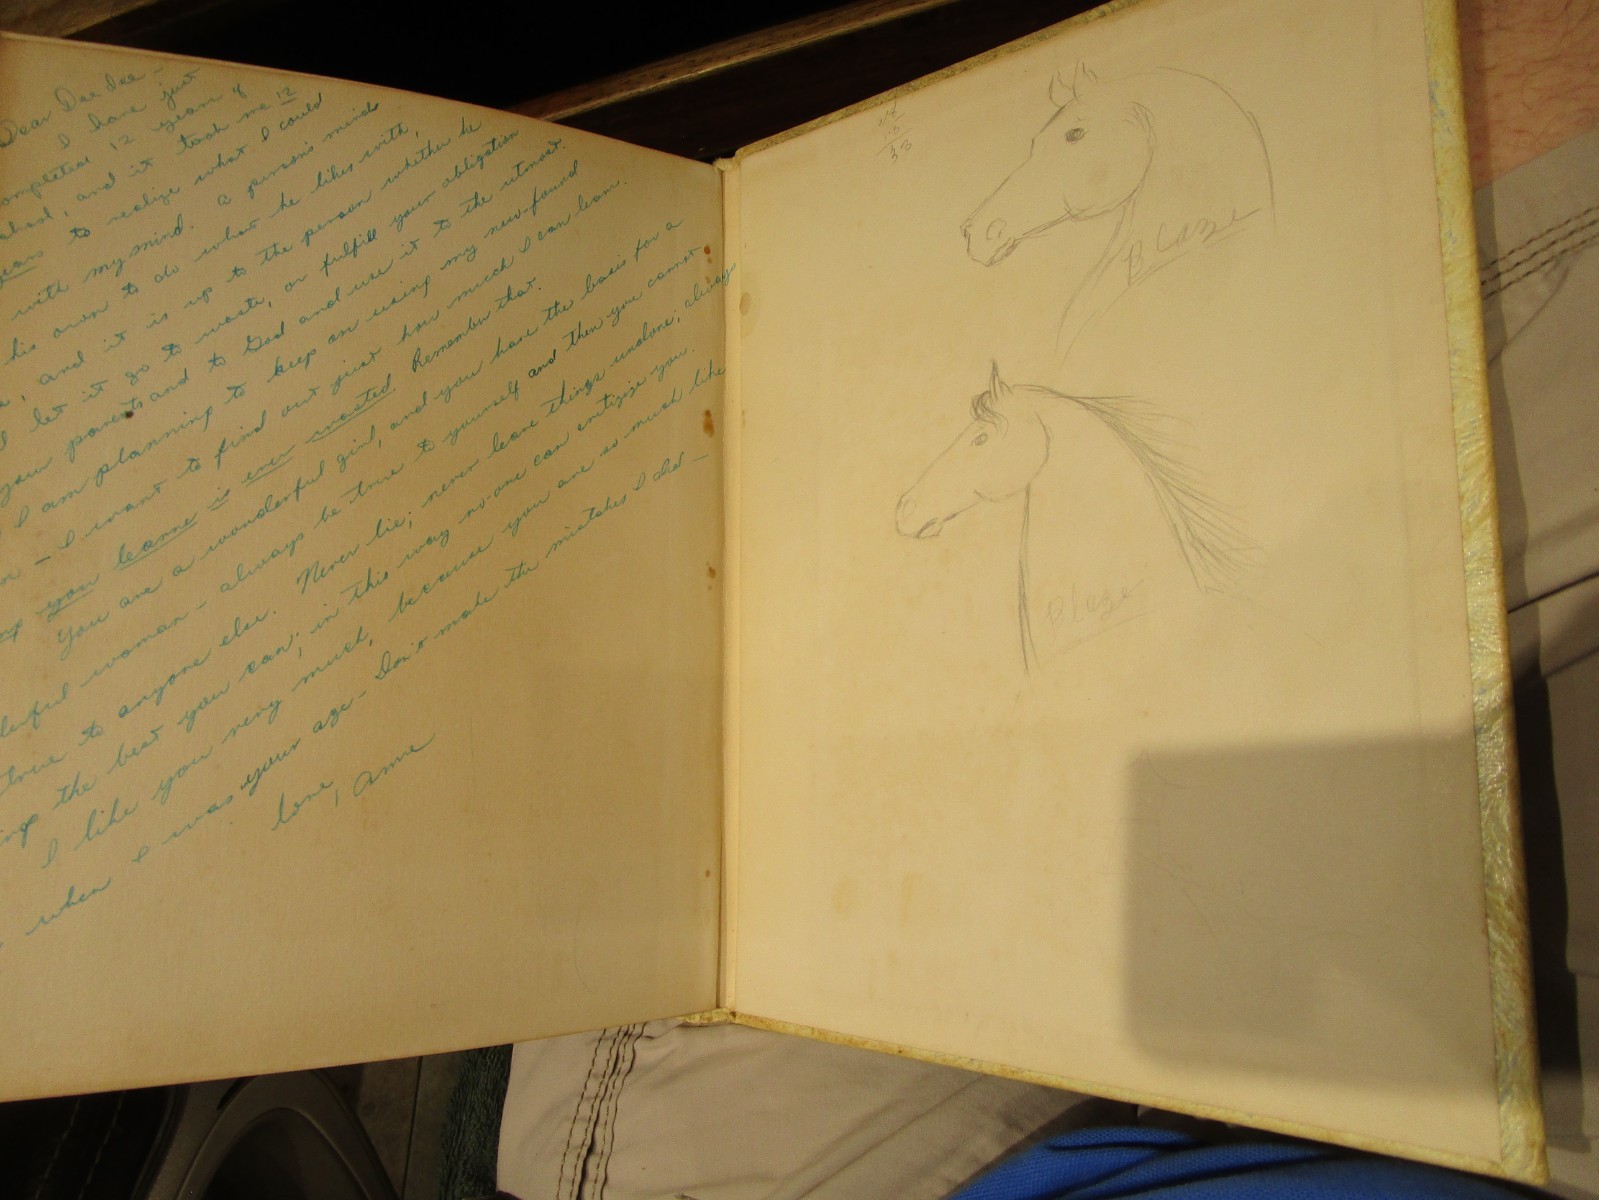 Dear Dee Dee -
I have just
completed 12 years of
school, and it took me 12
years to realize what I could
with my mind. A person's mind
his own to do what he likes with,
and it is up to the person whether he
let it go to waste, or fulfill your obligation
your parents and to God and use it to the utmost.
I am planning to keep on using my new-found
- I want to find out just how much I can learn.
you learn is ever wasted. Remember that.
You are a wonderful girl, and you have the basis for a
woman - always be true to yourself and then you cannot
true to anyone else. Never lie; never leave things undone; always
the best you can; in this way no-one can critizize you.
I like you very much, because you are so much like
when I was your age - Don't make the mistakes I did -
Love, Anne
Blaze
Blaze